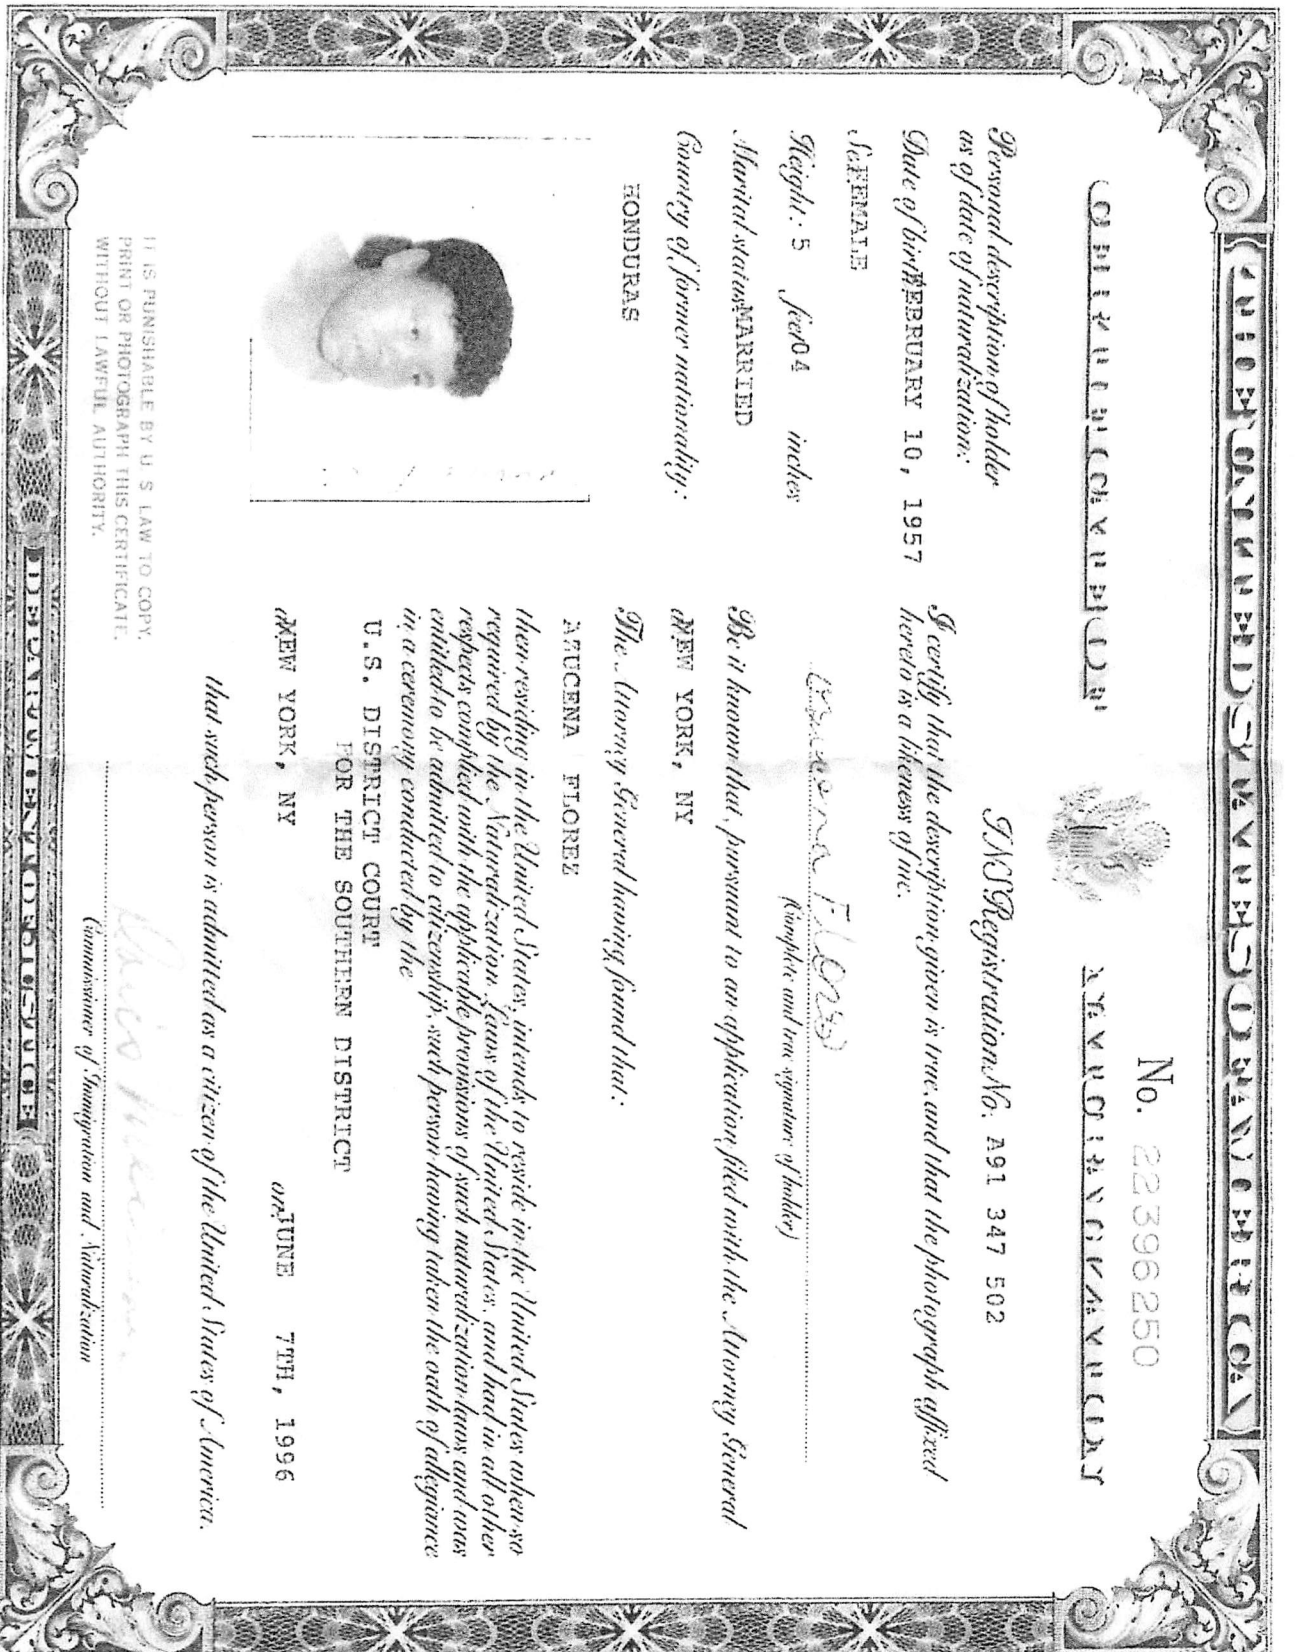 THE UNITED STATES OF AMERICA
No. 22396250
CERTIFICATE OF NATURALIZATION
INS Registration No. A91 347 502
Personal description of holder
as of date of naturalization:
Date of birth FEBRUARY 10, 1957
Sex FEMALE
Height: 5 feet 04 inches
Marital status MARRIED
Country of former nationality:
HONDURAS
I certify that the description given is true, and that the photograph affixed
hereto is a likeness of me.
Azucena Florez
(Complete and true signature of holder)
Be it known that, pursuant to an application filed with the Attorney General
at NEW YORK, NY
The Attorney General having found that:
AZUCENA FLOREZ
then residing in the United States, intends to reside in the United States when so
required by the Naturalization Laws of the United States, and had in all other
respects complied with the applicable provisions of such naturalization laws and was
entitled to be admitted to citizenship, such person having taken the oath of allegiance
in a ceremony conducted by the
U.S. DISTRICT COURT
FOR THE SOUTHERN DISTRICT
at NEW YORK, NY on JUNE 7TH, 1996
that such person is admitted as a citizen of the United States of America.
IT IS PUNISHABLE BY U. S. LAW TO COPY,
PRINT OR PHOTOGRAPH THIS CERTIFICATE,
WITHOUT LAWFUL AUTHORITY.
Commissioner of Immigration and Naturalization
DEPARTMENT OF JUSTICE